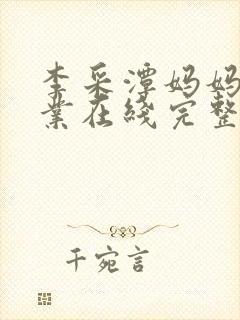 李采潭妈妈
业在线完整
千宛言